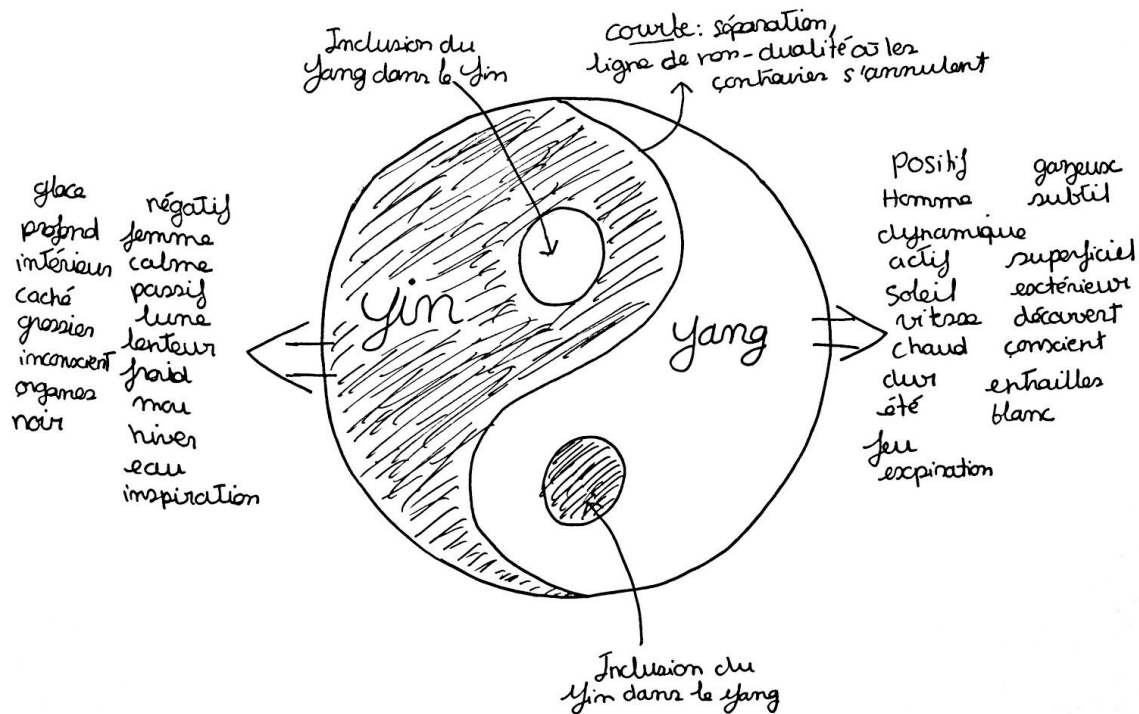 Inclusion du
Yang dans le Yin
courbe: séparation,
ligne de non-dualité où les
contraires s'annulent
glace
profond
intérieur
caché
grossier
inconscient
organes
noir
négatif
femme
calme
passif
lune
lenteur
froid
mou
hiver
eau
inspiration
yin
yang
Positif
Homme
dynamique
actif
Soleil
vitesse
chaud
dur
été
feu
expiration
gazeux
subtil
superficiel
extérieur
découvert
conscient
entrailles
blanc
Inclusion du
Yin dans le Yang